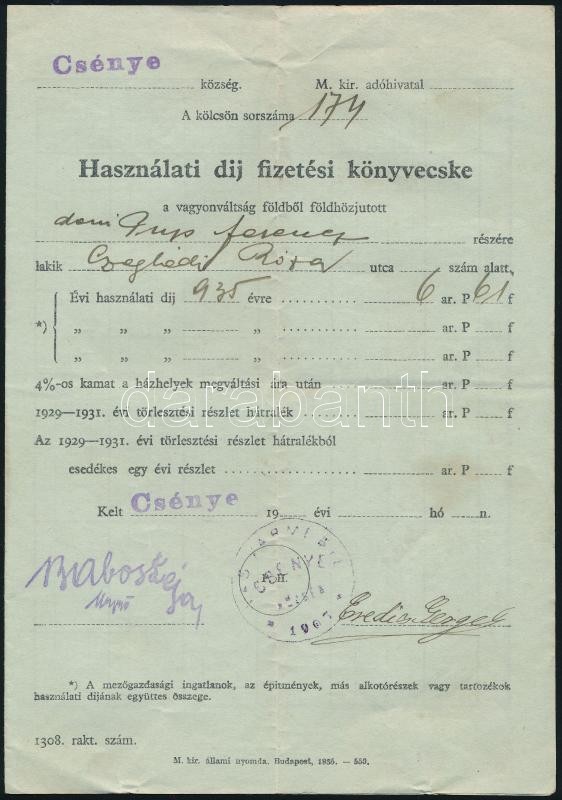 Csénye község. M. kir. adóhivatal
A kölcsön sorszáma 174
Használati dij fizetési könyvecske
a vagyonváltság földből földhözjutott
ferencz részére
lakik Róza utca szám alatt,
Évi használati dij 935 évre 6 ar. P 61 f
*) „ „ „ „ ar. P f
„ „ „ „ ar. P f
4%-os kamat a házhelyek megváltási ára után ar. P f
1929—1931. évi törlesztési részlet hátralék ar. P f
Az 1929—1931. évi törlesztési részlet hátralékból
esedékes egy évi részlet ar. P f
Kelt Csénye 19 évi hó n.
CSÉNYE
P. H.
darabanth
*) A mezőgazdasági ingatlanok, az épitmények, más alkotórészek vagy tartozékok
használati dijának együttes összege.
1308. rakt. szám.
M. kir. állami nyomda. Budapest, 1935. — 553.